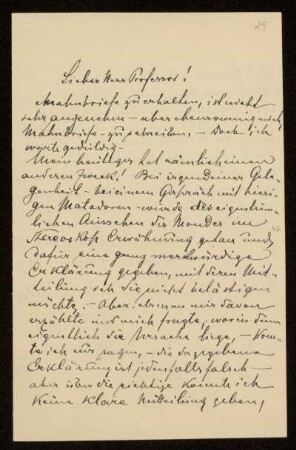 29
Lieber Herr Professor!
Mahnbriefe zu erhalten, ist nicht
sehr angenehm – aber ebensowenig auch
Mahnbriefe – zu schreiben, – Doch ich
warte geduldig –
Mein heutiger hat nämlich einen
anderen Zweck! Bei irgendeiner Gele-
genheit – bei einem Gespräch mit hiesi-
gen Matadoren – wurde des eigentüm-
lichen Aussehen des Mondes im
Stereoskop Erwähnung getan und
dafür eine ganz merkwürdige
Erklärung gegeben, mit deren Mit-
teilung ich Sie nicht belästigen
möchte, – Aber als man mir davon
erzählte und mich frugte, worin denn
eigentlich die Ursache liege, – Konn-
te ich nur sagen, – die da gegebene
Erklärung ist jedenfalls falsch –
aber über die richtige konnte ich
keine klare Mitteilung geben,